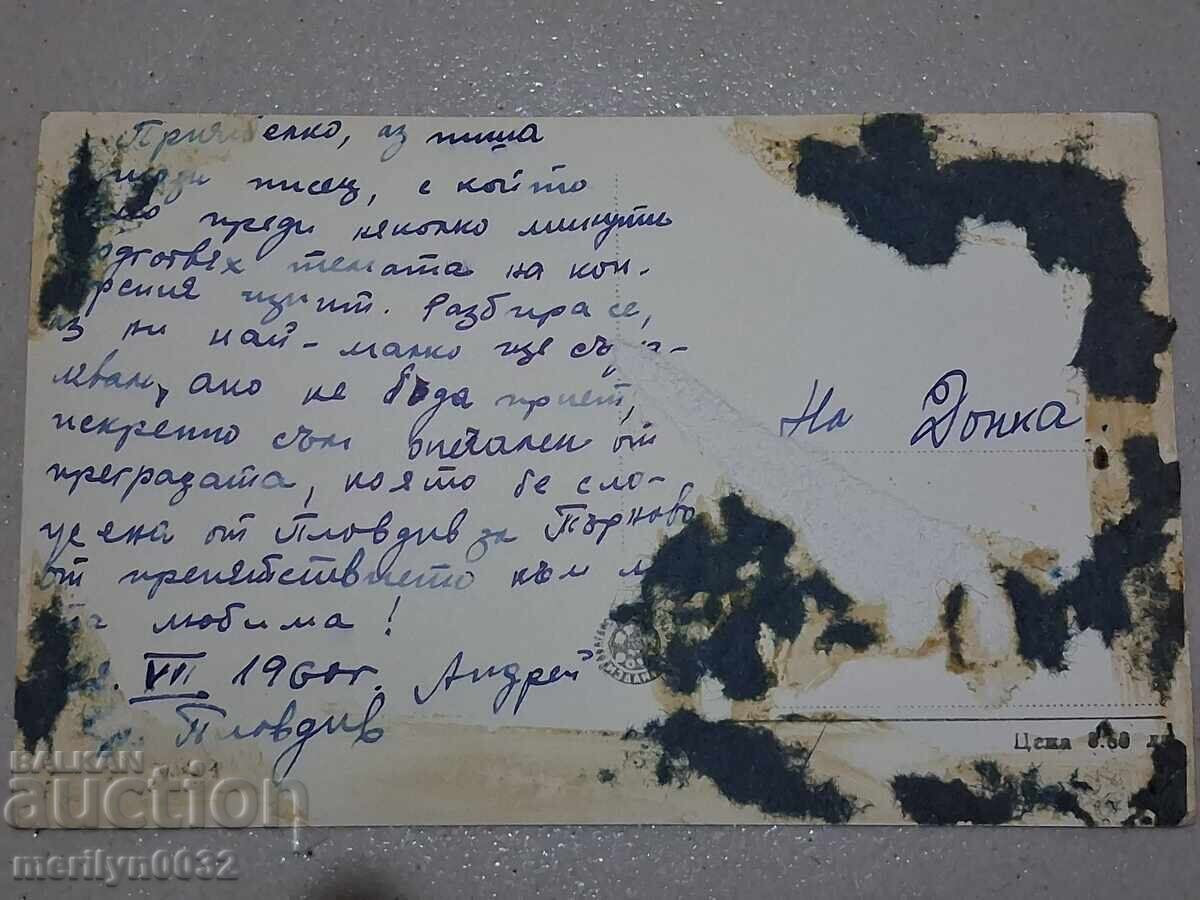 Приятелко, аз пиша
писец, с който
преди няколко минути
темата на кон-
изпит. Разбира се,
аз ни най-малко ще
ако не бъда приет,
искренно съм опечален от
преградата, която бе сло-
жена от Пловдив за Търново
от препятствието към
любима!
VII 1960г. Андрей
Пловдив
На Донка
Цена 0.80 лв
BALKAN
auction
merilyn0032